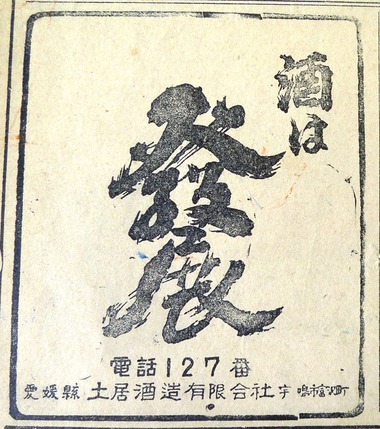 酒は
發展
電話127番
愛媛縣 土居酒造有限会社